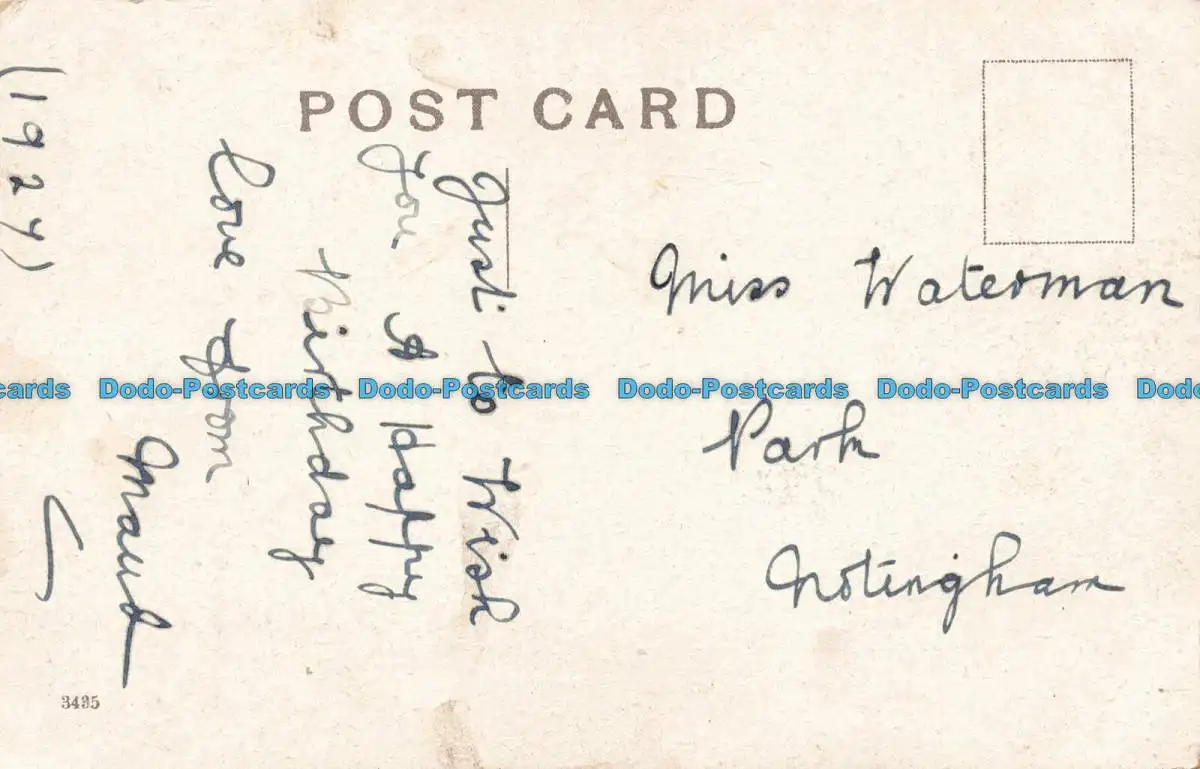 POST CARD
Just to Wish
You A Happy
Birthday
Love from
Maud
(1927)
Miss Waterman
Park
Notingham
3495
Dodo-Postcards Dodo-Postcards Dodo-Postcards Dodo-Postcards